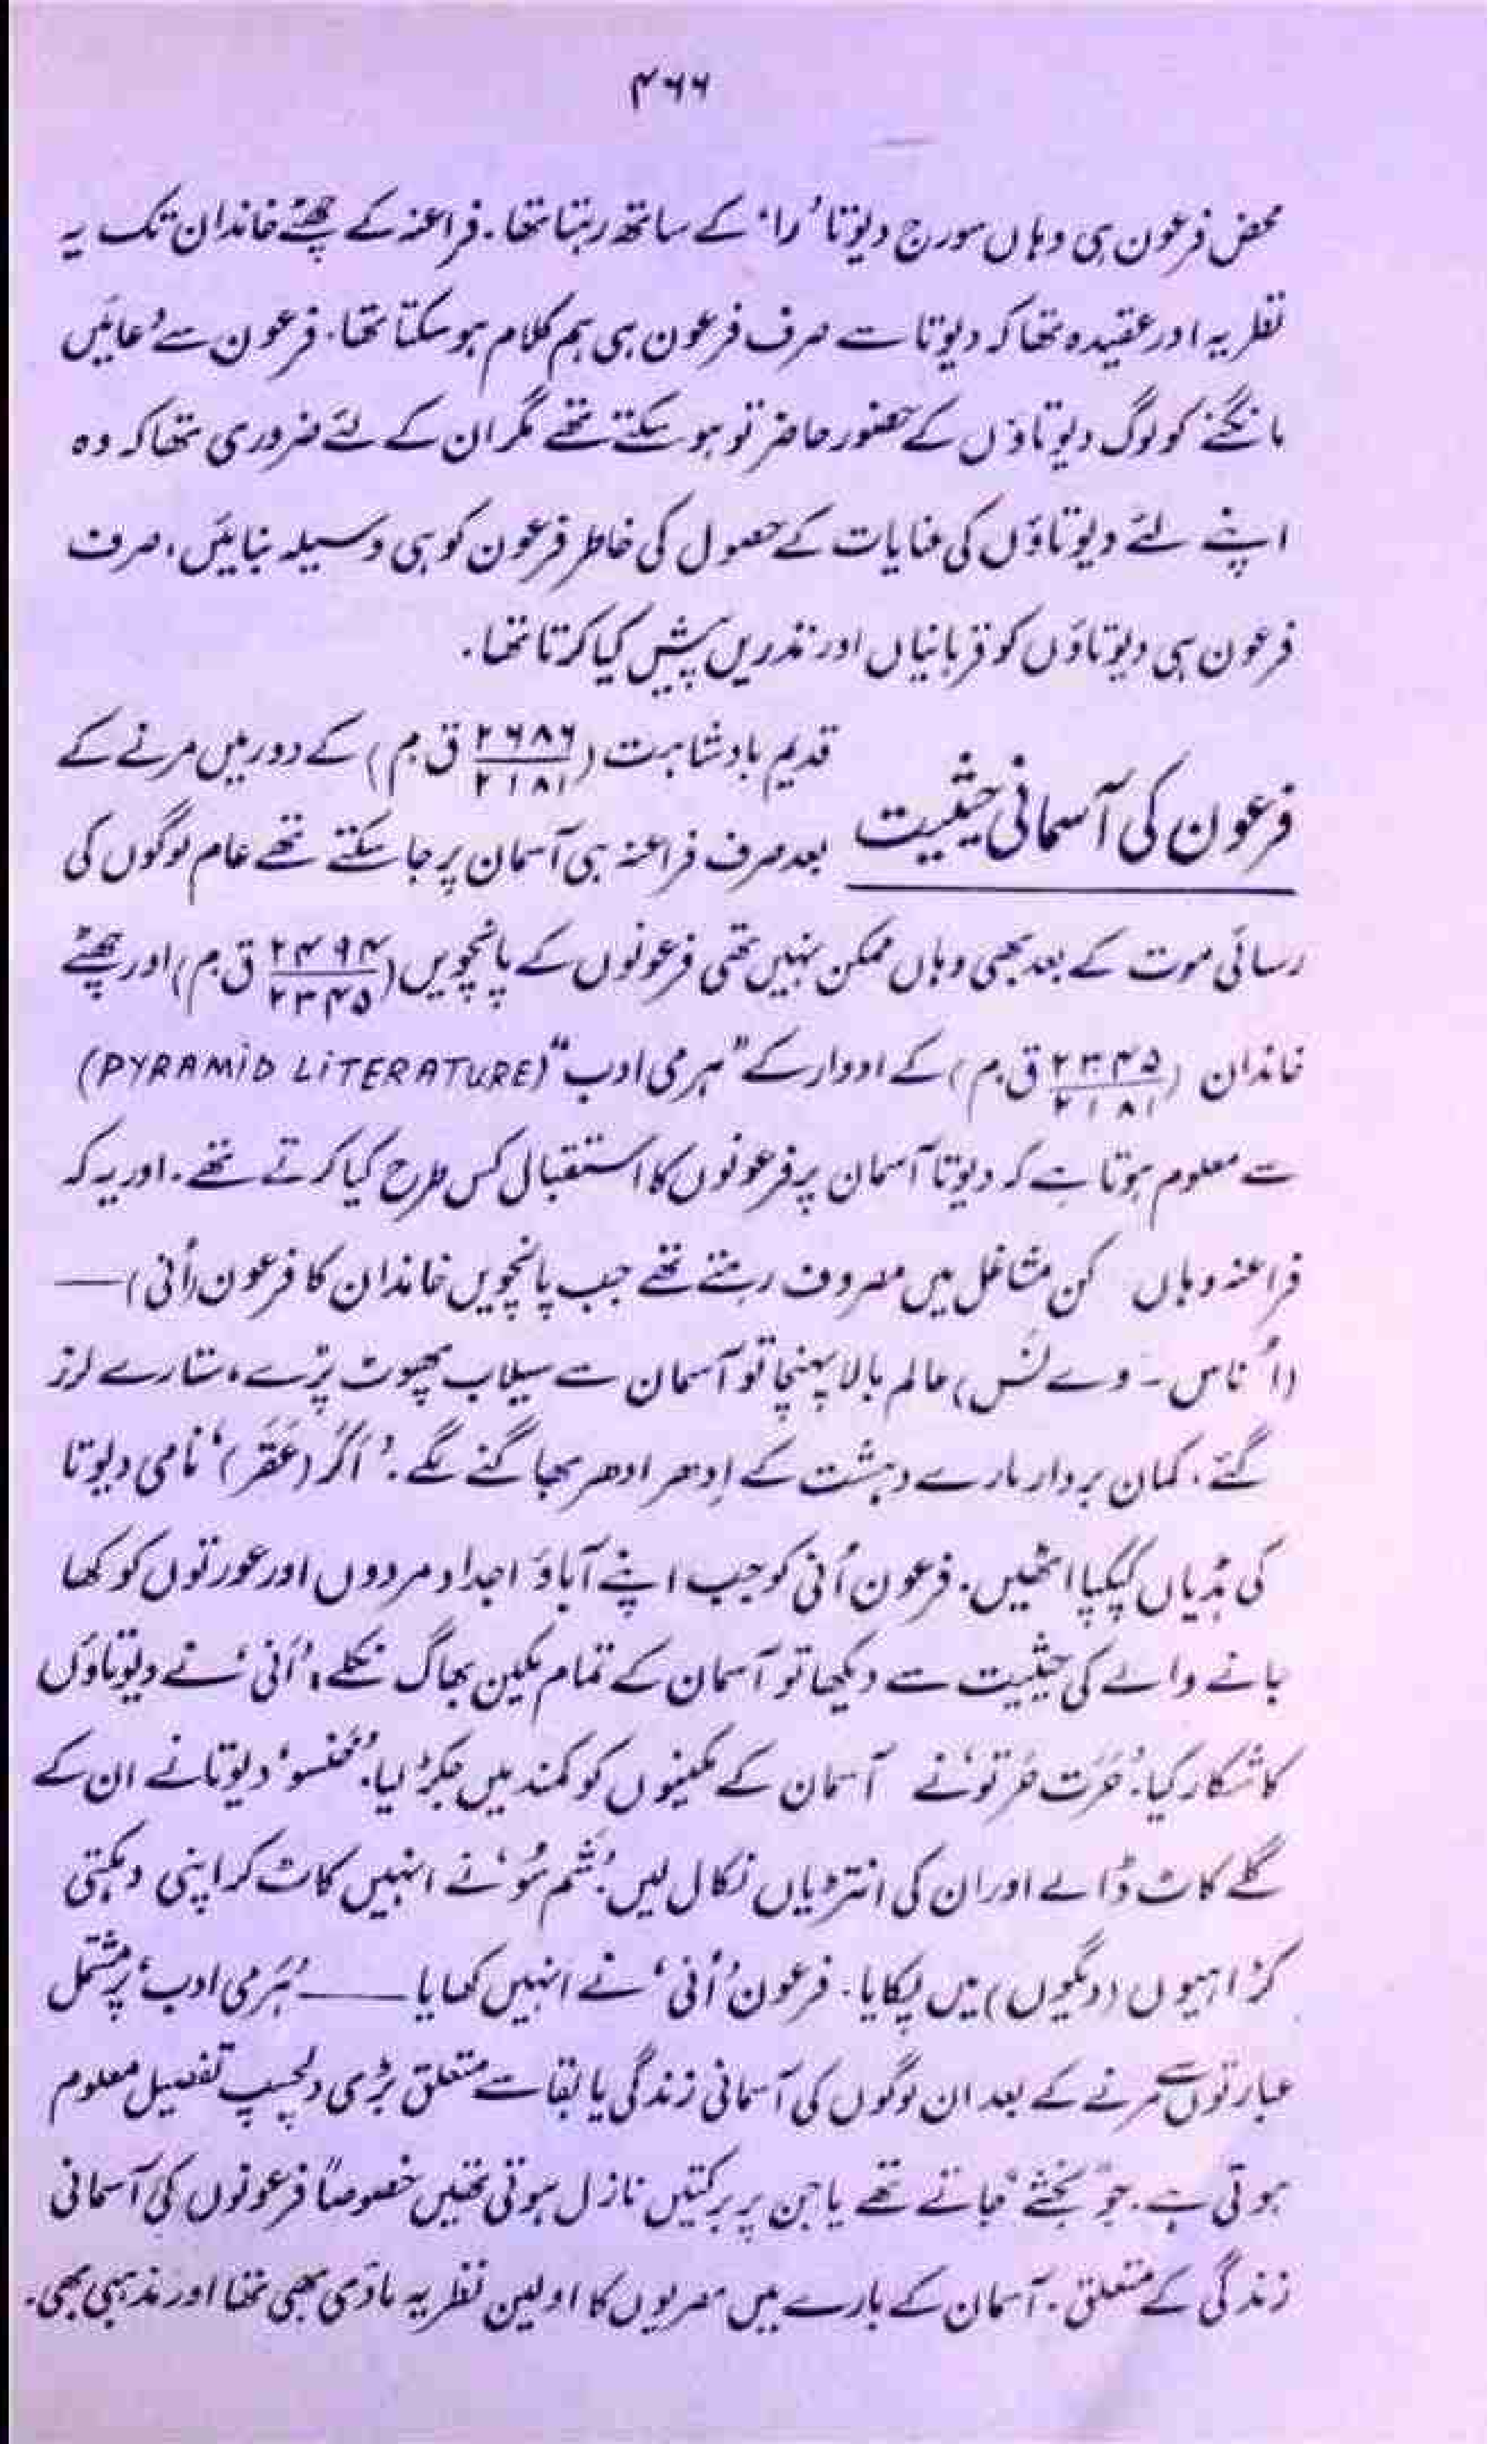 ۴۶۶
محض فرعون ہی وہاں سورج دیوتا 'را' کے ساتھ رہتا تھا۔ فراعنہ کے چھٹے خاندان تک یہ
نظریہ اور عقیدہ تھا کہ دیوتا سے صرف فرعون ہی ہم کلام ہو سکتا تھا۔ فرعون سے دُعائیں
مانگنے کو لوگ دیوتاؤں کے حضور حاضر تو ہو سکتے تھے مگر ان کے لئے ضروری تھا کہ وہ
اپنے لئے دیوتاؤں کی عنایات کے حصول کی خاطر فرعون کو ہی وسیلہ بنائیں، صرف
فرعون ہی دیوتاؤں کو قربانیاں اور نذریں پیش کیا کرتا تھا۔
فرعون کی آسمانی حیثیت
قدیم بادشاہت (۲۶۸۶/۲۱۸۱ ق م) کے دور میں مرنے کے
بعد صرف فراعنہ ہی آسمان پر جا سکتے تھے عام لوگوں کی
رسائی موت کے بعد بھی وہاں ممکن نہیں تھی فرعونوں کے پانچویں (۲۴۹۴/۲۳۴۵ ق م) اور چھٹے
خاندان (۲۳۴۵/۲۱۸۱ ق م) کے ادوار کے "ہرمی ادب" (PYRAMID LITERATURE)
سے معلوم ہوتا ہے کہ دیوتا آسمان پر فرعونوں کا استقبال کس طرح کیا کرتے تھے۔ اور یہ کہ
فراعنہ وہاں کن مشاغل میں مصروف رہتے تھے جب پانچویں خاندان کا فرعون (اُنی) —
(اُناس - وے نَس) عالم بالا پہنچا تو آسمان سے سیلاب پھوٹ پڑے، ستارے لرز
گئے۔ کمان بردار مارے دہشت کے اِدھر ادھر بھاگنے لگے۔ 'اَکَر (عَقَر)' نامی دیوتا
کی ہڈیاں کپکپا اٹھیں۔ فرعون اُنی کو جب اپنے آباؤ اجداد مردوں اور عورتوں کو کھا
جانے والے کی حیثیت سے دیکھا تو آسمان کے تمام مکین بھاگ نکلے، 'اُنی' نے دیوتاؤں
کا شکار کیا۔ نے آسمان کے مکینوں کو کمند میں جکڑ لیا۔ 'خنسو' دیوتا نے ان کے
گلے کاٹ ڈالے اور ان کی انتڑیاں نکال لیں۔ 'شم مُو' نے انہیں کاٹ کر اپنی دہکتی
کڑاہیوں (دیگوں) میں پکایا۔ فرعون 'اُنی' نے انہیں کھایا — 'ہَرمی ادب' پر مشتمل
عبارتوں سے مرنے کے بعد ان لوگوں کی آسمانی زندگی یا بقا سے متعلق بڑی دلچسپ تفصیل معلوم
ہوتی ہے۔ جو "بخشے" جاتے تھے یا جن پر برکتیں نازل ہوتی تھیں خصوصاً فرعونوں کی آسمانی
زندگی کے متعلق۔ آسمان کے بارے میں مصریوں کا اولین نظریہ مادّی بھی تھا اور مذہبی بھی۔